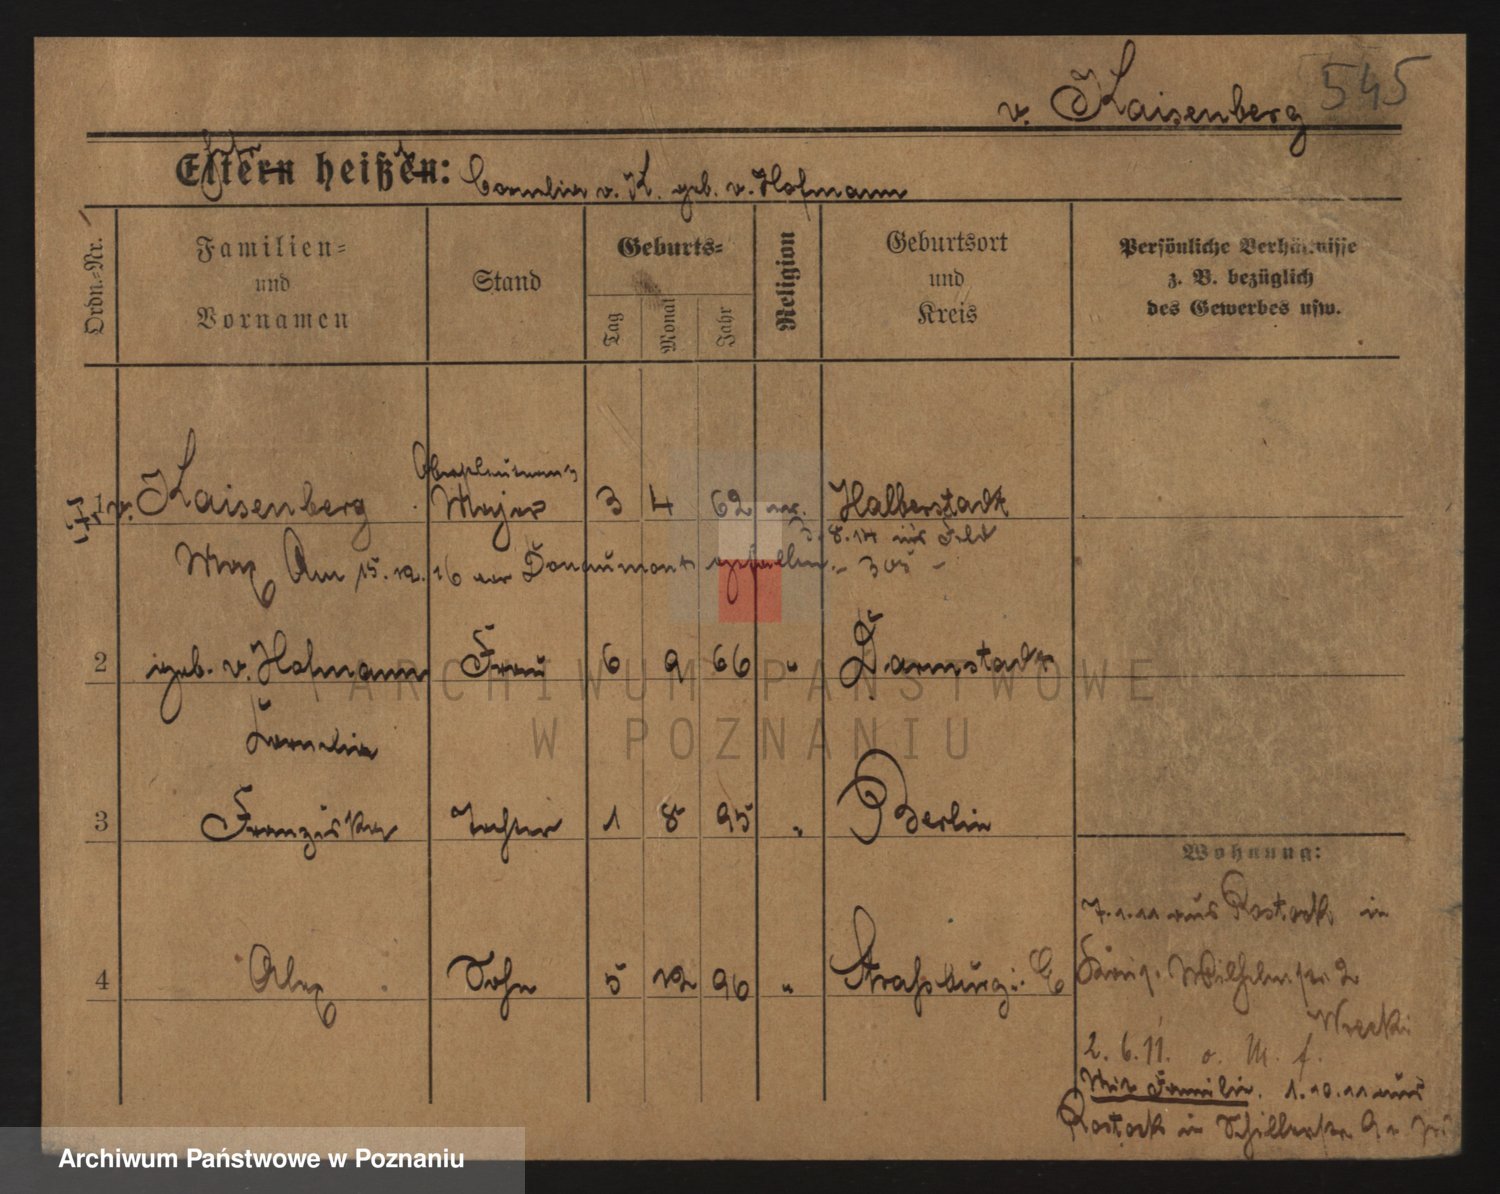 v. Kaisenberg 545
Eltern heißen: Cornelia v. K. geb. v. Hofmann
Ordn.-Nr.
Familien-
und
Vornamen
Stand
Geburts-
Tag
Monat
Jahr
Religion
Geburtsort
und
Kreis
Persönliche Verhältnisse
z. B. bezüglich
des Gewerbes usw.
Oberstleutnant
1 v. Kaisenberg Major 3 4 62 ev. Halberstadt
3. 8. 14 ins Feld
Max Am 15. 12. 16 vor Douaumont gefallen.
2 geb. v. Hofmann Frau 6 9 66 " Darmstadt
Cornelia
3 Franziska Tochter 1 8 95 " Berlin
Wohnung:
7. 1. 11 aus Rostock in
4 Alex Sohn 5 12 96 " Straßburg i. E
Königs. Wilhelmstr. 2
2. 6. 11. o. M. f.
Mit Familie. 1. 10. 11 aus
Rostock in Schillerstr. 9
ARCHIWUM PAŃSTWOWE
W POZNANIU
Archiwum Państwowe w Poznaniu